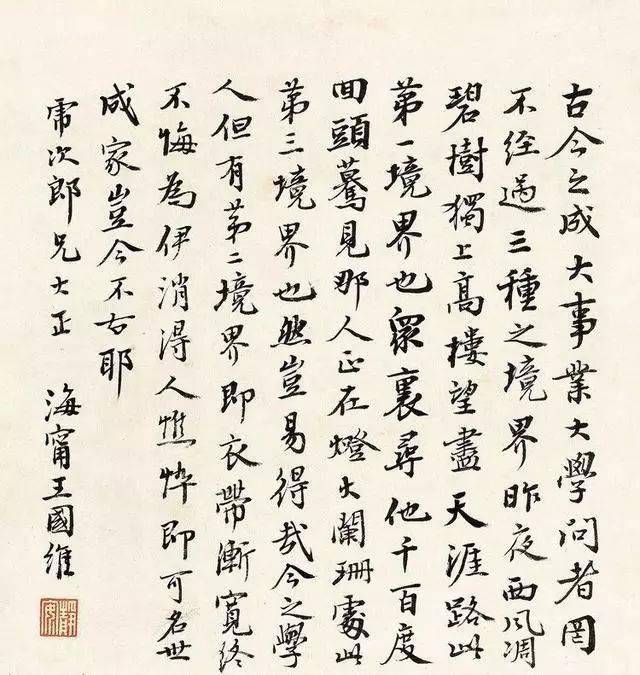 古今之成大事業大學问者罔
不经過三種之境界昨夜西风凋
碧樹獨上高樓望盡天涯路此
第一境界也眾裏尋他千百度
回頭驀見那人正在燈火闌珊處此
第三境界也然豈易得哉今之學
人但有第二境界即衣帶漸寬终
不悔為伊消得人憔悴即可名世
成家豈今不古耶
帚次郎兄大正
海甯王國維
靜安